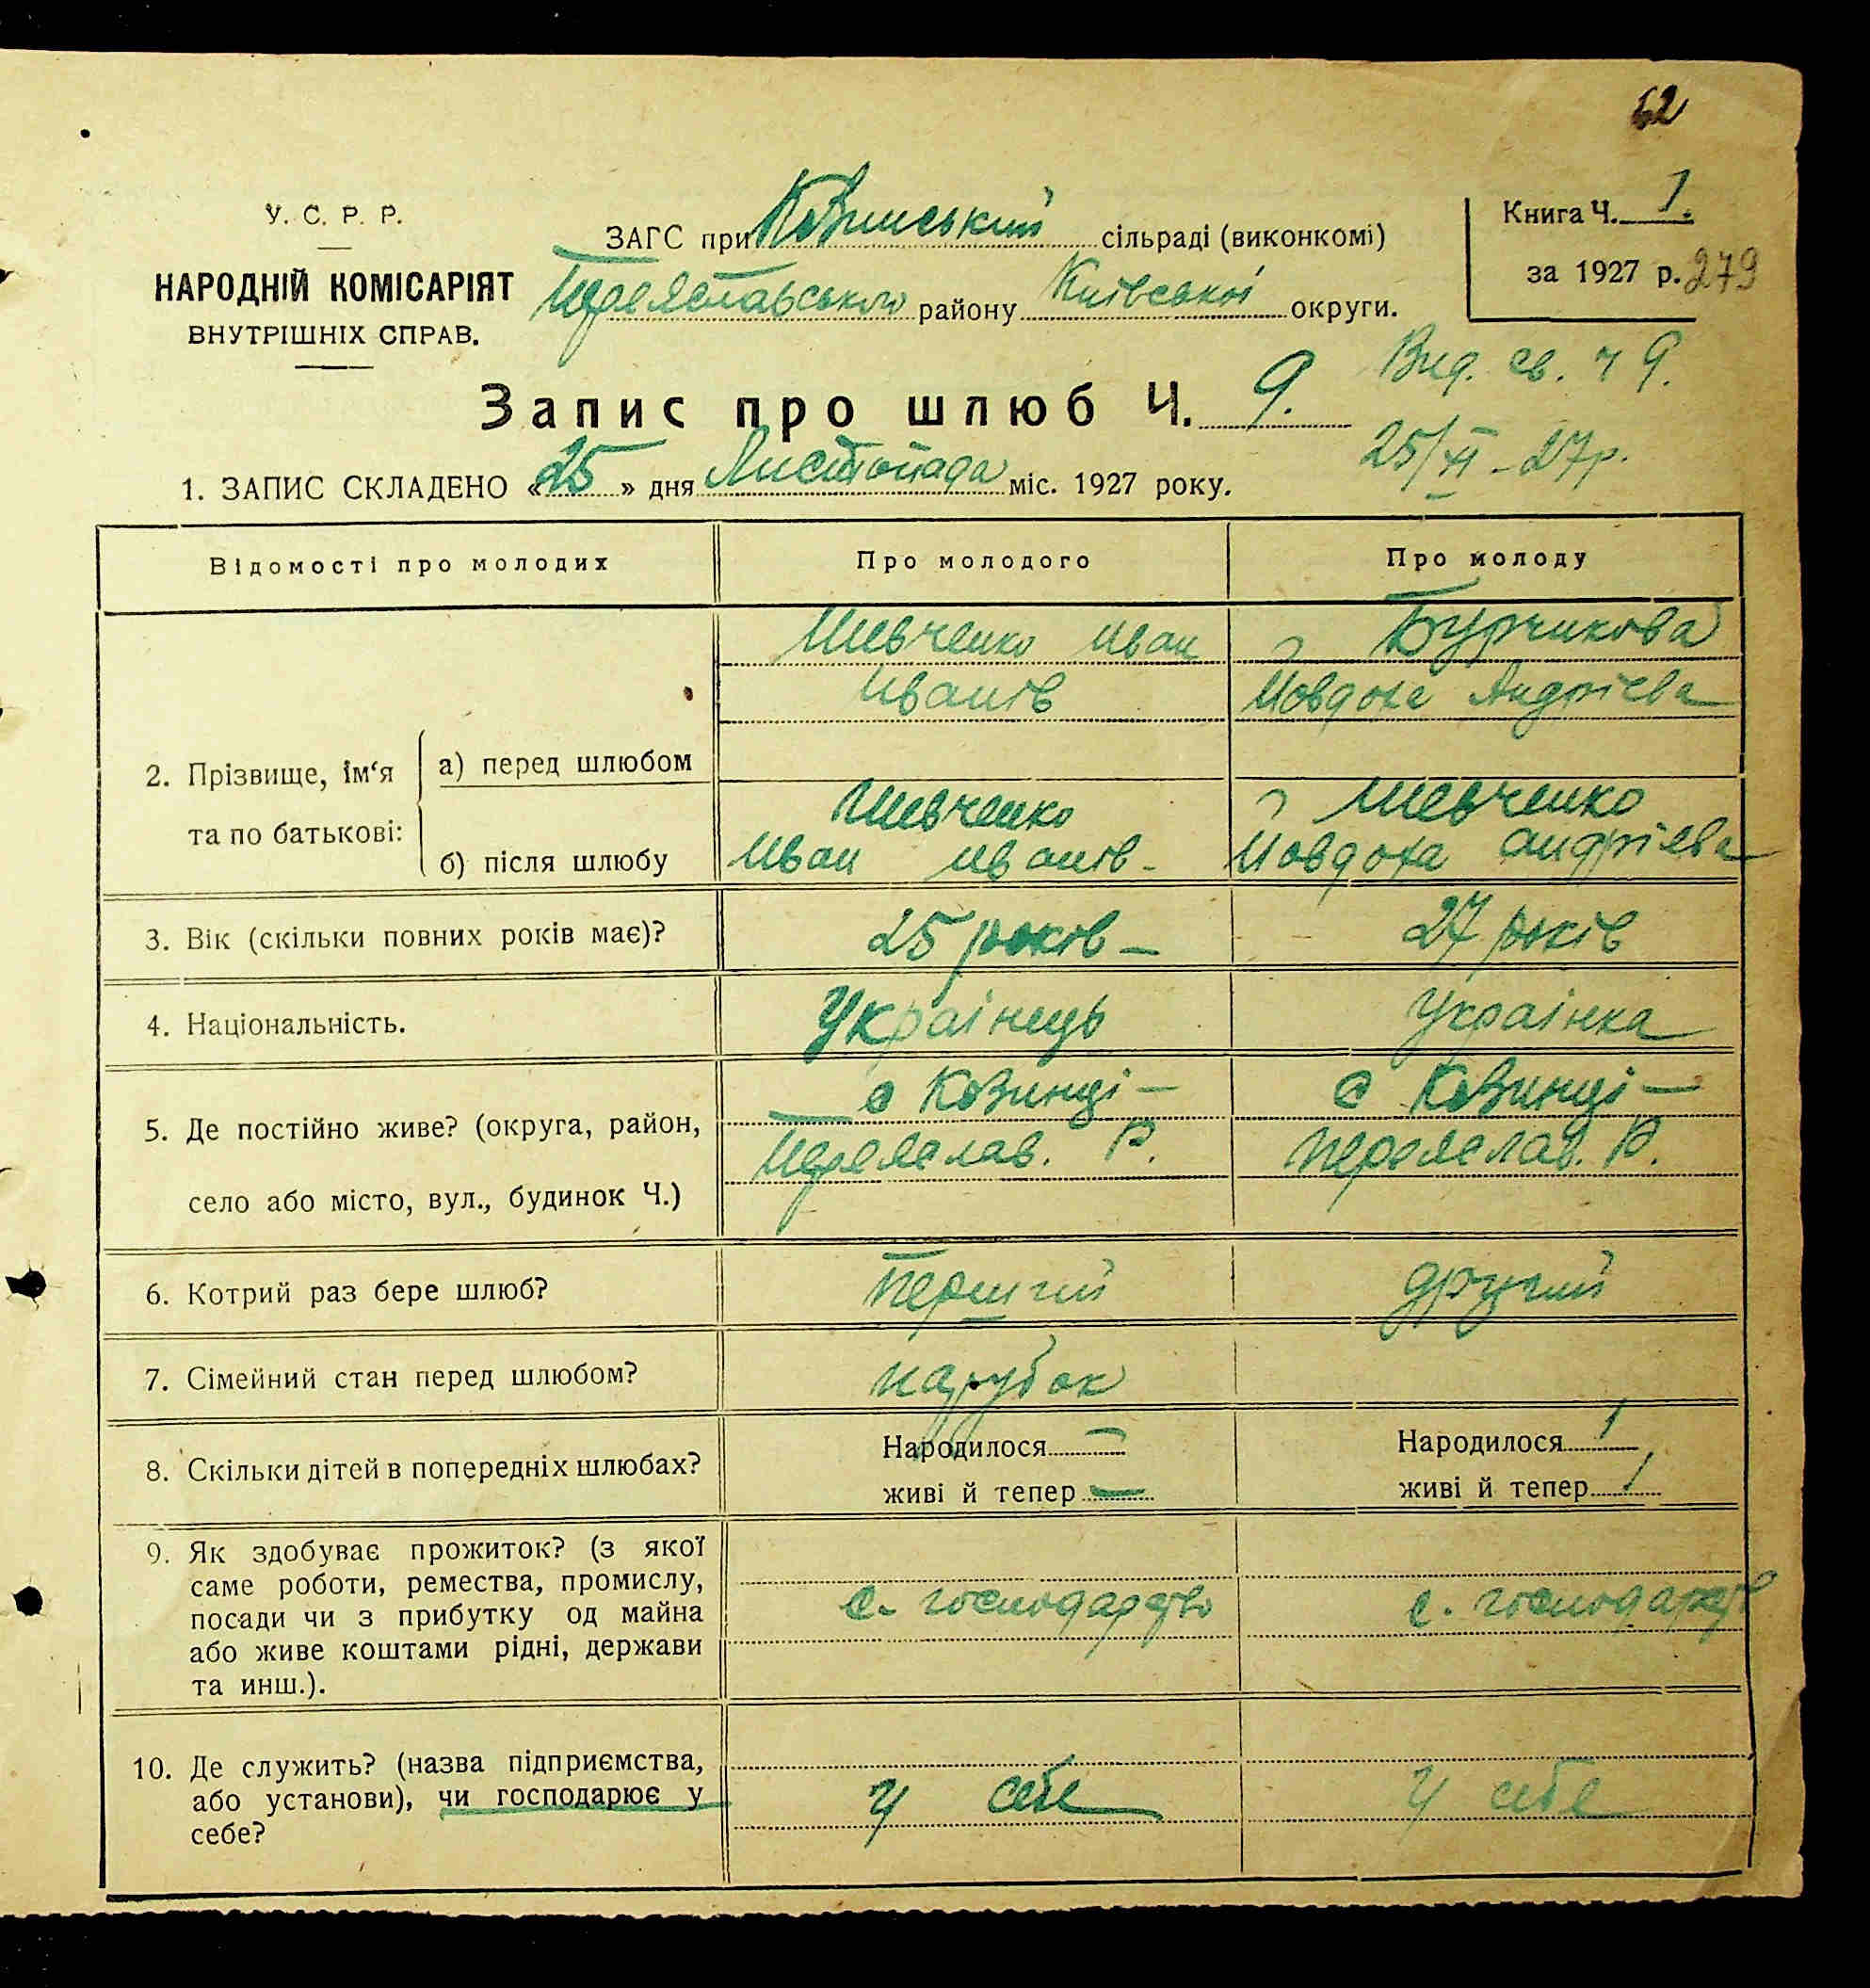 62
У. С. Р. Р.
НАРОДНІЙ КОМІСАРІЯТ
ВНУТРІШНІХ СПРАВ.
ЗАГС при Козинський сільраді (виконкомі)
Переяславського району Київської округи.
Книга Ч. 1.
за 1927 р. 279
Запис про шлюб Ч. 9.
Вид. св. ч 9.
25/XI-27р.
1. ЗАПИС СКЛАДЕНО «25» дня Листопада міс. 1927 року.
Відомості про молодих
Про молодого
Про молоду
2. Прізвище, ім‘я
та по батькові:
а) перед шлюбом
Шевченко Иван
Иванів
Бурчикова
Йовдоха Андріева
б) після шлюбу
Шевченко
Иван Иванів -
Шевченко
Йовдоха Андріева
3. Вік (скільки повних років має)?
25 років -
27 років
4. Національність.
Українець
Українка
5. Де постійно живе? (округа, район,
село або місто, вул., будинок Ч.)
с Козинці -
Переяслав. Р.
с Козинці -
Переяслав. Р.
6. Котрий раз бере шлюб?
Перший
другий
7. Сімейний стан перед шлюбом?
парубок
8. Скільки дітей в попередніх шлюбах?
Народилося -
живі й тепер -
Народилося 1
живі й тепер 1
9. Як здобуває прожиток? (з якої
саме роботи, ремества, промислу,
посади чи з прибутку од майна
або живе коштами рідні, держави
та инш.).
с. господарство
с. господарство
10. Де служить? (назва підприємства,
або установи), чи господарює у
себе?
У себе
У себе